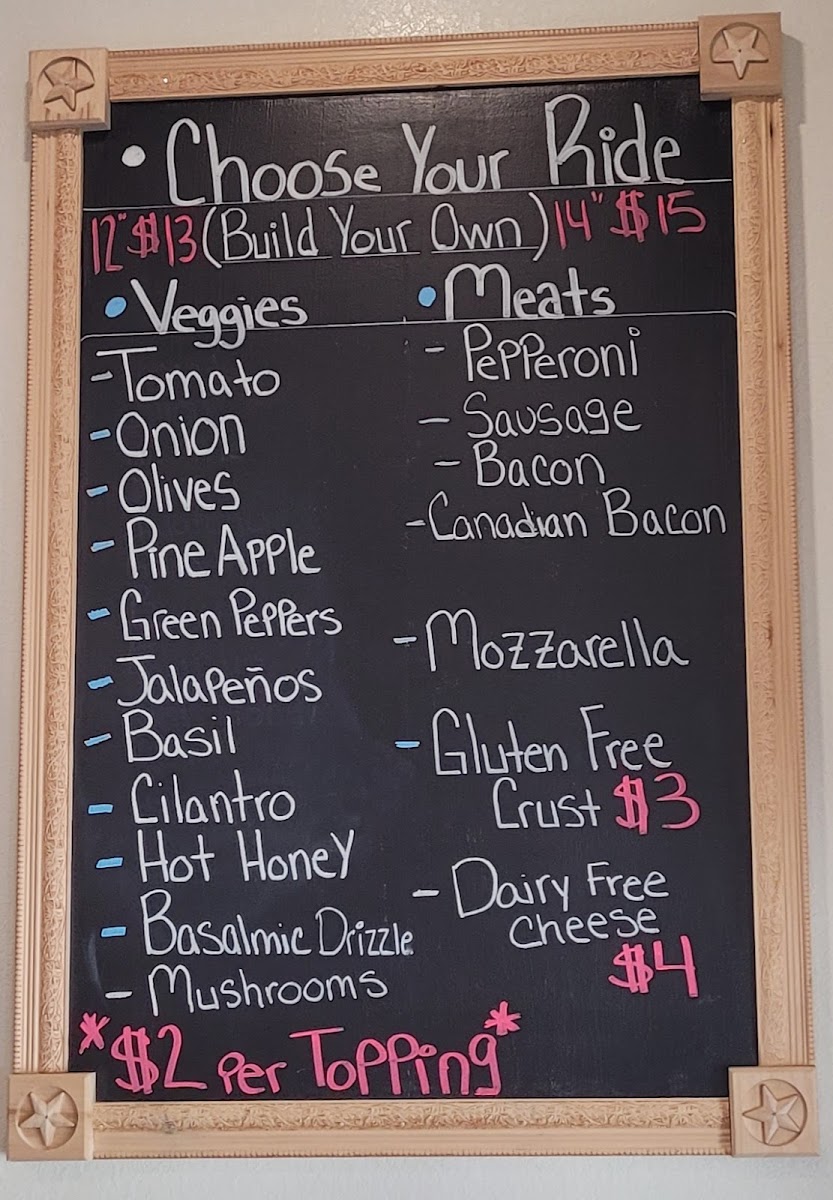 • Choose Your Ride
12" $13 (Build Your Own) 14" $15
• Veggies
- Tomato
- Onion
- Olives
- Pine Apple
- Green Peppers
- Jalapeños
- Basil
- Cilantro
- Hot Honey
- Basalmic Drizzle
- Mushrooms
• Meats
- Pepperoni
- Sausage
- Bacon
- Canadian Bacon
- Mozzarella
- Gluten Free
Crust $3
- Dairy Free
cheese
$4
*$2 per Topping*